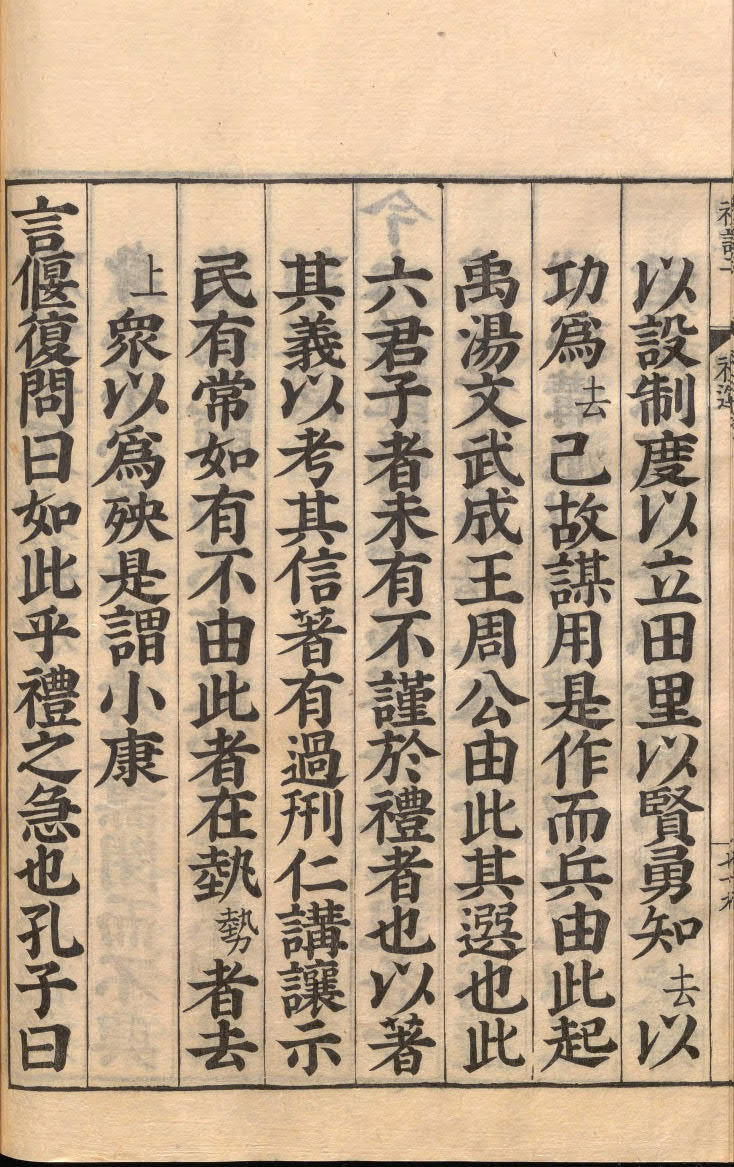 以設制度以立田里以賢勇知去以
功爲去己故謀用是作而兵由此起
禹湯文武成王周公由此其選也此
六君子者未有不謹於禮者也以著
其義以考其信著有過刑仁講讓示
民有常如有不由此者在埶勢者去
上衆以爲殃是謂小康
言偃復問曰如此乎禮之急也孔子曰